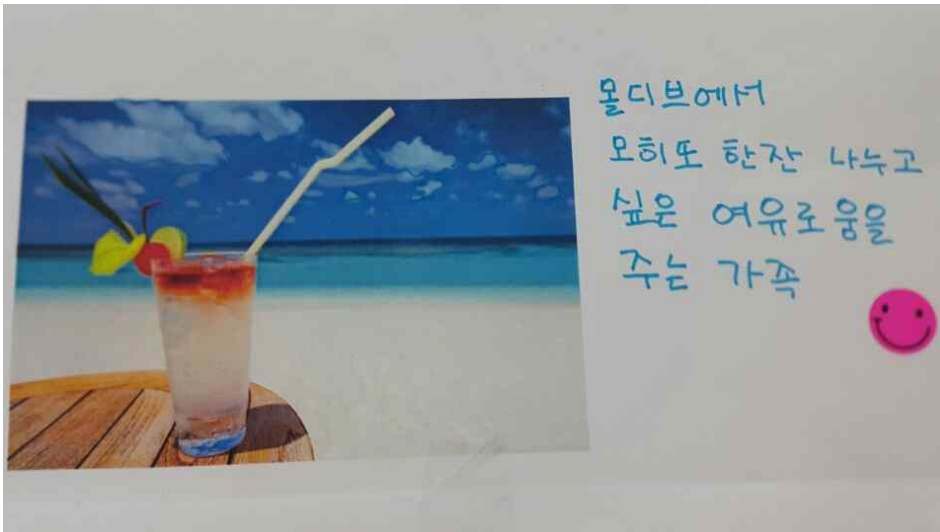 몰디브에서
모히또 한잔 나누고
싶은 여유로움을
주는 가족